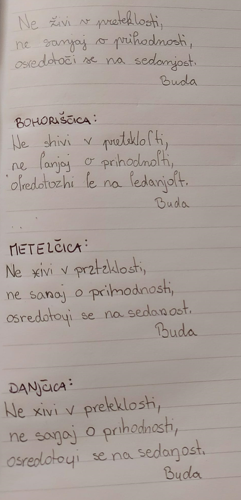 Ne živi v preteklosti,
ne sanjaj o prihodnosti,
osredotoči se na sedanjost.
Buda
BOHORIŠČICA:
Ne shivi v pretekloſti,
ne ſanjaj o prihodnoſti,
oſredotozhi ſe na ſedanjoſt.
Buda
METELČICA:
Ne xivi v przteklosti,
ne saŋaj o prihodnosti,
osredotoyi se na sedaŋost.
Buda
DANJČICA:
Ne xivi v preteklosti,
ne saŋaj o prihodnosti,
osredotoyi se na sedaŋost.
Buda